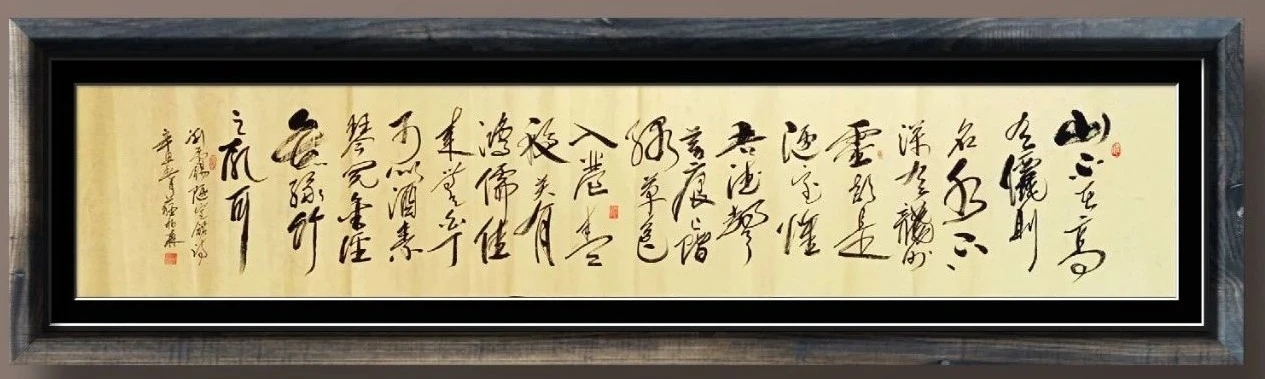 山不在高
有僊則
名水不
深有龍則
靈斯是
陋室惟
吾德馨
苔痕上階
綠草色
入簾青
談笑有
鴻儒往
來無白丁
可以調素
琴閱金經
無絲竹
之亂耳
劉禹錫陋室銘詩
辛丑